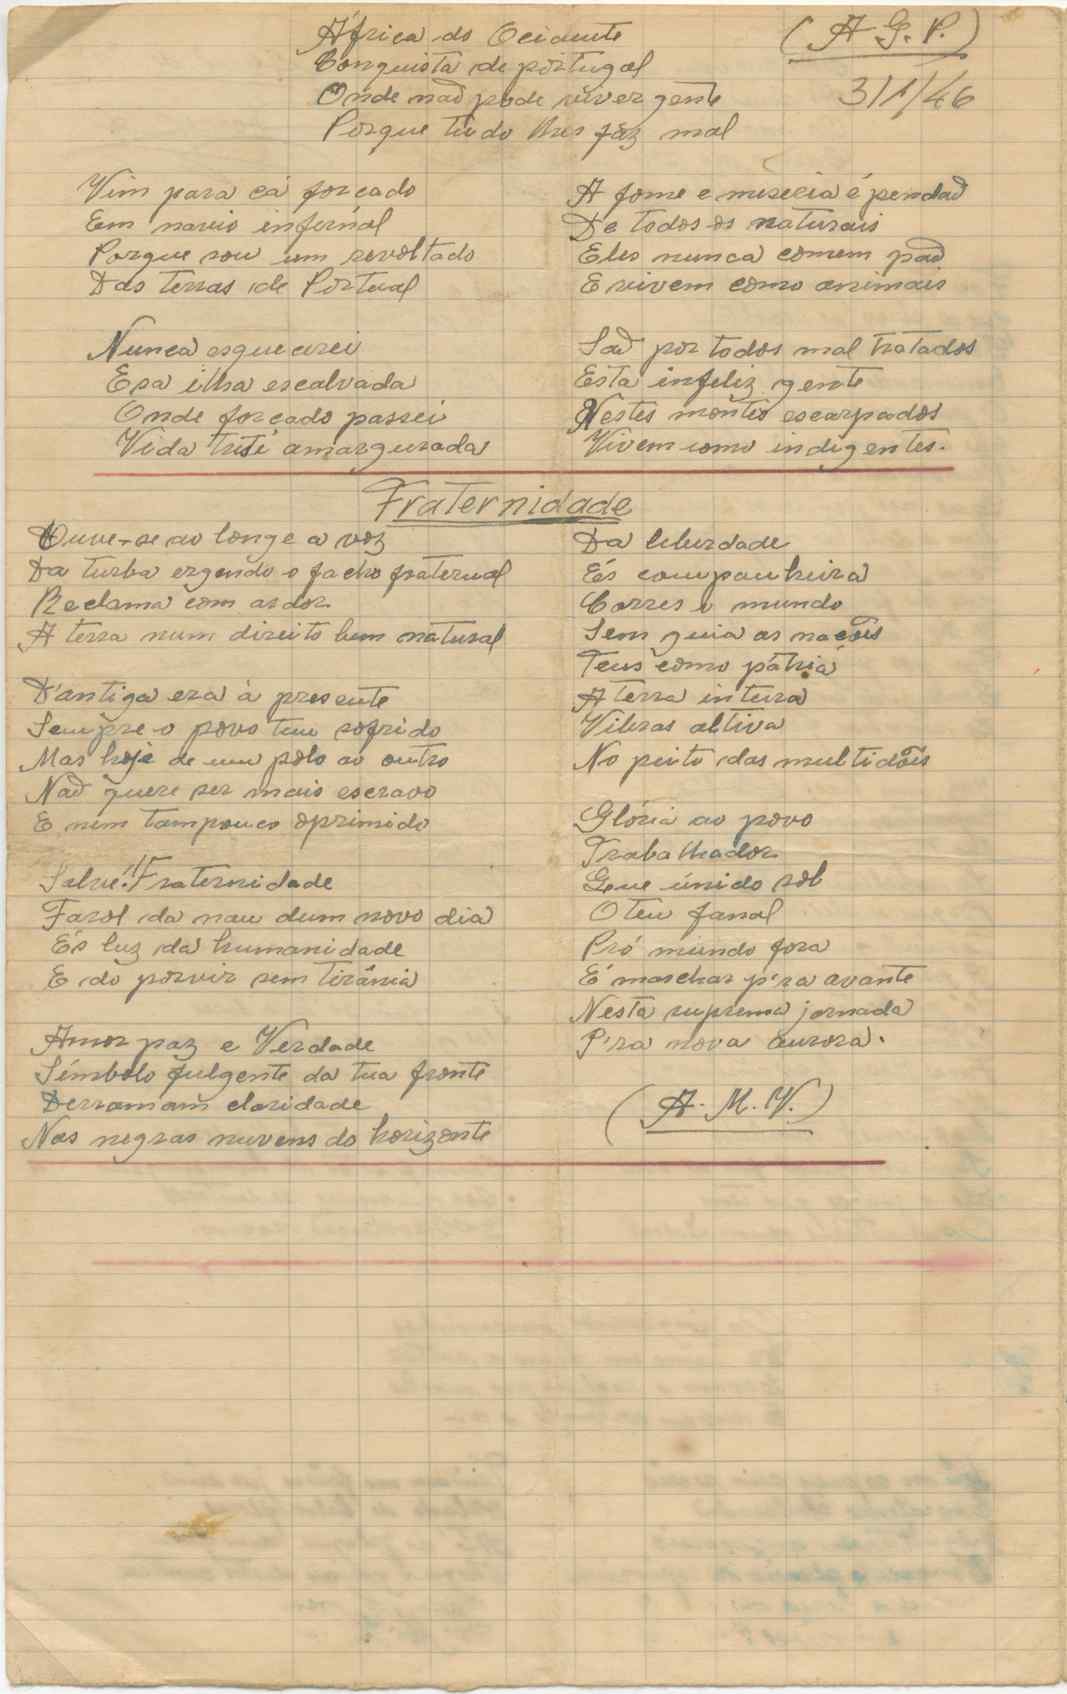 África do Ocidente
Conquista de portugal
Onde naõ pode viver gente
Porque tudo lhes faz mal
(A G. P.)
3/1/46
Vim para cá forcado
Em navio infernal
Porque sou um revoltado
Das terras de Portual
Nunca esquecerei
Esa ilha escalvada
Onde forcado passei
Vida triste amargurada
A fome e miseria é pendaõ
De todos os naturais
Eles nunca comem paõ
E vivem como animais
Saõ por todos mal tratados
Esta infeliz gente
Nestes montes escarpados
Vivem como indigentes.
Fraternidade
Ouve-se ao longe a voz
Da turba ergendo o facho fraternal
Reclama com ardor
A terra num direito bem natural
D'antiga era à presente
Sempre o povo tem sofrido
Mas hoje de um polo ao outro
Naõ quere ser mais escravo
E nem tampouco oprimido
Salvé!! Fraternidade
Farol da nau dum novo dia
És luz da humanidade
E do porvir sem tirânia
Amor paz e Verdade
Símbolo fulgente da tua fronte
Derramam claridade
Nas negras nuvens do horizonte
Da liberdade
És companheira
Corres o mundo
Sem guia as nacões
Tens como pátria
A terra inteira
Vibras altiva
No peito das multidões
Glória ao povo
Trabalhador
Que únido sob
O teu fanal
Pró mundo fora
É marchar p'ra avante
Nesta suprema jornada
P'ra nova aurora.
(A. M. V.)